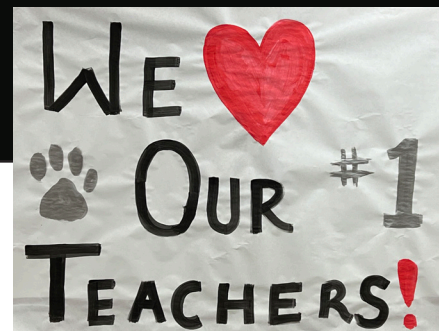 WE
OUR #1
TEACHERS!